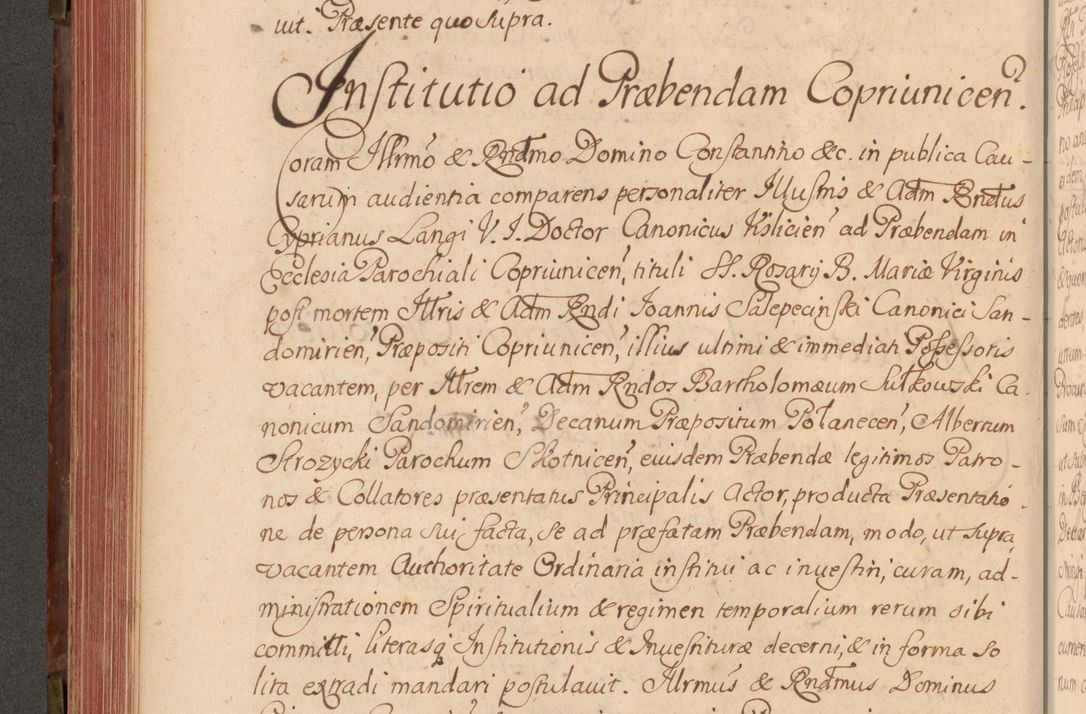 uit. Præsente quo supra.
Institutio ad Præbendam Copriunicen̄.
Coram Illrmo & Rndmo Domino Constantino &c. in publica Cau-
sarum audientia comparens personaliter Illustris & Adm Rndus
Cyprianus Langi V. I. Doctor Canonicus Kilicien̄ ad Præbendam in
Ecclesia Parochiali Copriunicen̄, tituli SS. Rosarij B. Mariæ Virginis
post mortem Illris & Adm Rndi Ioannis Salepeciński Canonici San-
domirien̄, Præpositi Copriunicen̄, illius ultimi & immediati Possessoris
vacantem, per Illrem & Adm Rndos Bartholomæum Sułkowski Ca-
nonicum Sandomirien̄, Decanum Præpositum Połanecen̄, Albertum
Strozycki Parochum Skotnicen̄, eiusdem Præbendæ legitimos Patro-
nos & Collatores præsentatus Principalis Actor, producta Præsentatio-
ne de persona sui facta, se ad præfatam Præbendam, modo, ut supra,
vacantem Authoritate Ordinaria institui ac investiri, curam, ad-
ministrationem Spiritualium & regimen temporalium rerum sibi
committi, literasq Institutionis & Investituræ decerni, & in forma so
lita extradi mandari postulavit. Illrmus & Rndmus Dominus